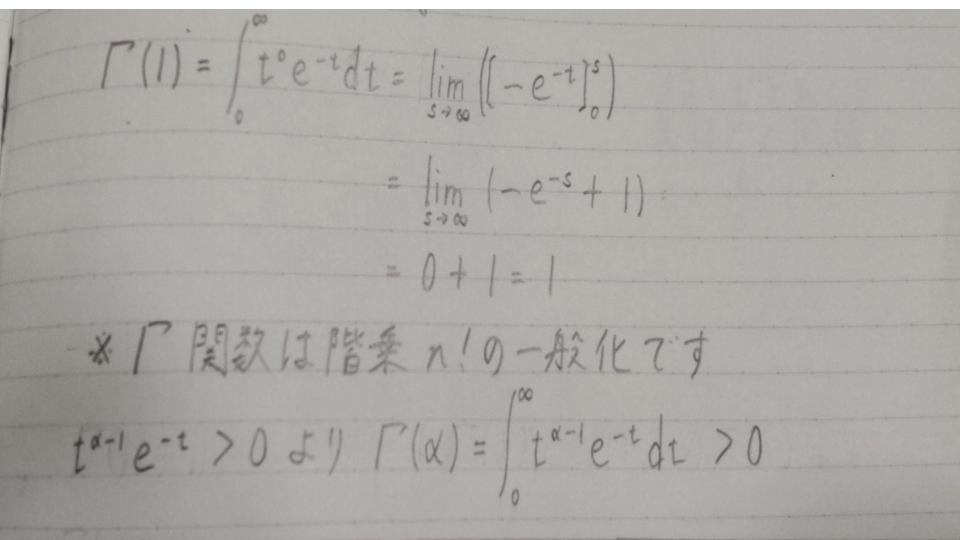 Γ(1) = ∫₀^∞ t⁰e⁻ᵗdt = lim_{s→∞} ([-e⁻ᵗ]₀ˢ)
= lim_{s→∞} (-e⁻ˢ + 1)
= 0 + 1 = 1
※ Γ関数は階乗 n! の一般化です
t^{α-1}e⁻ᵗ > 0 より Γ(α) = ∫₀^∞ t^{α-1}e⁻ᵗdt > 0